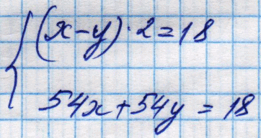 (x-y)·2=18
54x+54y=18